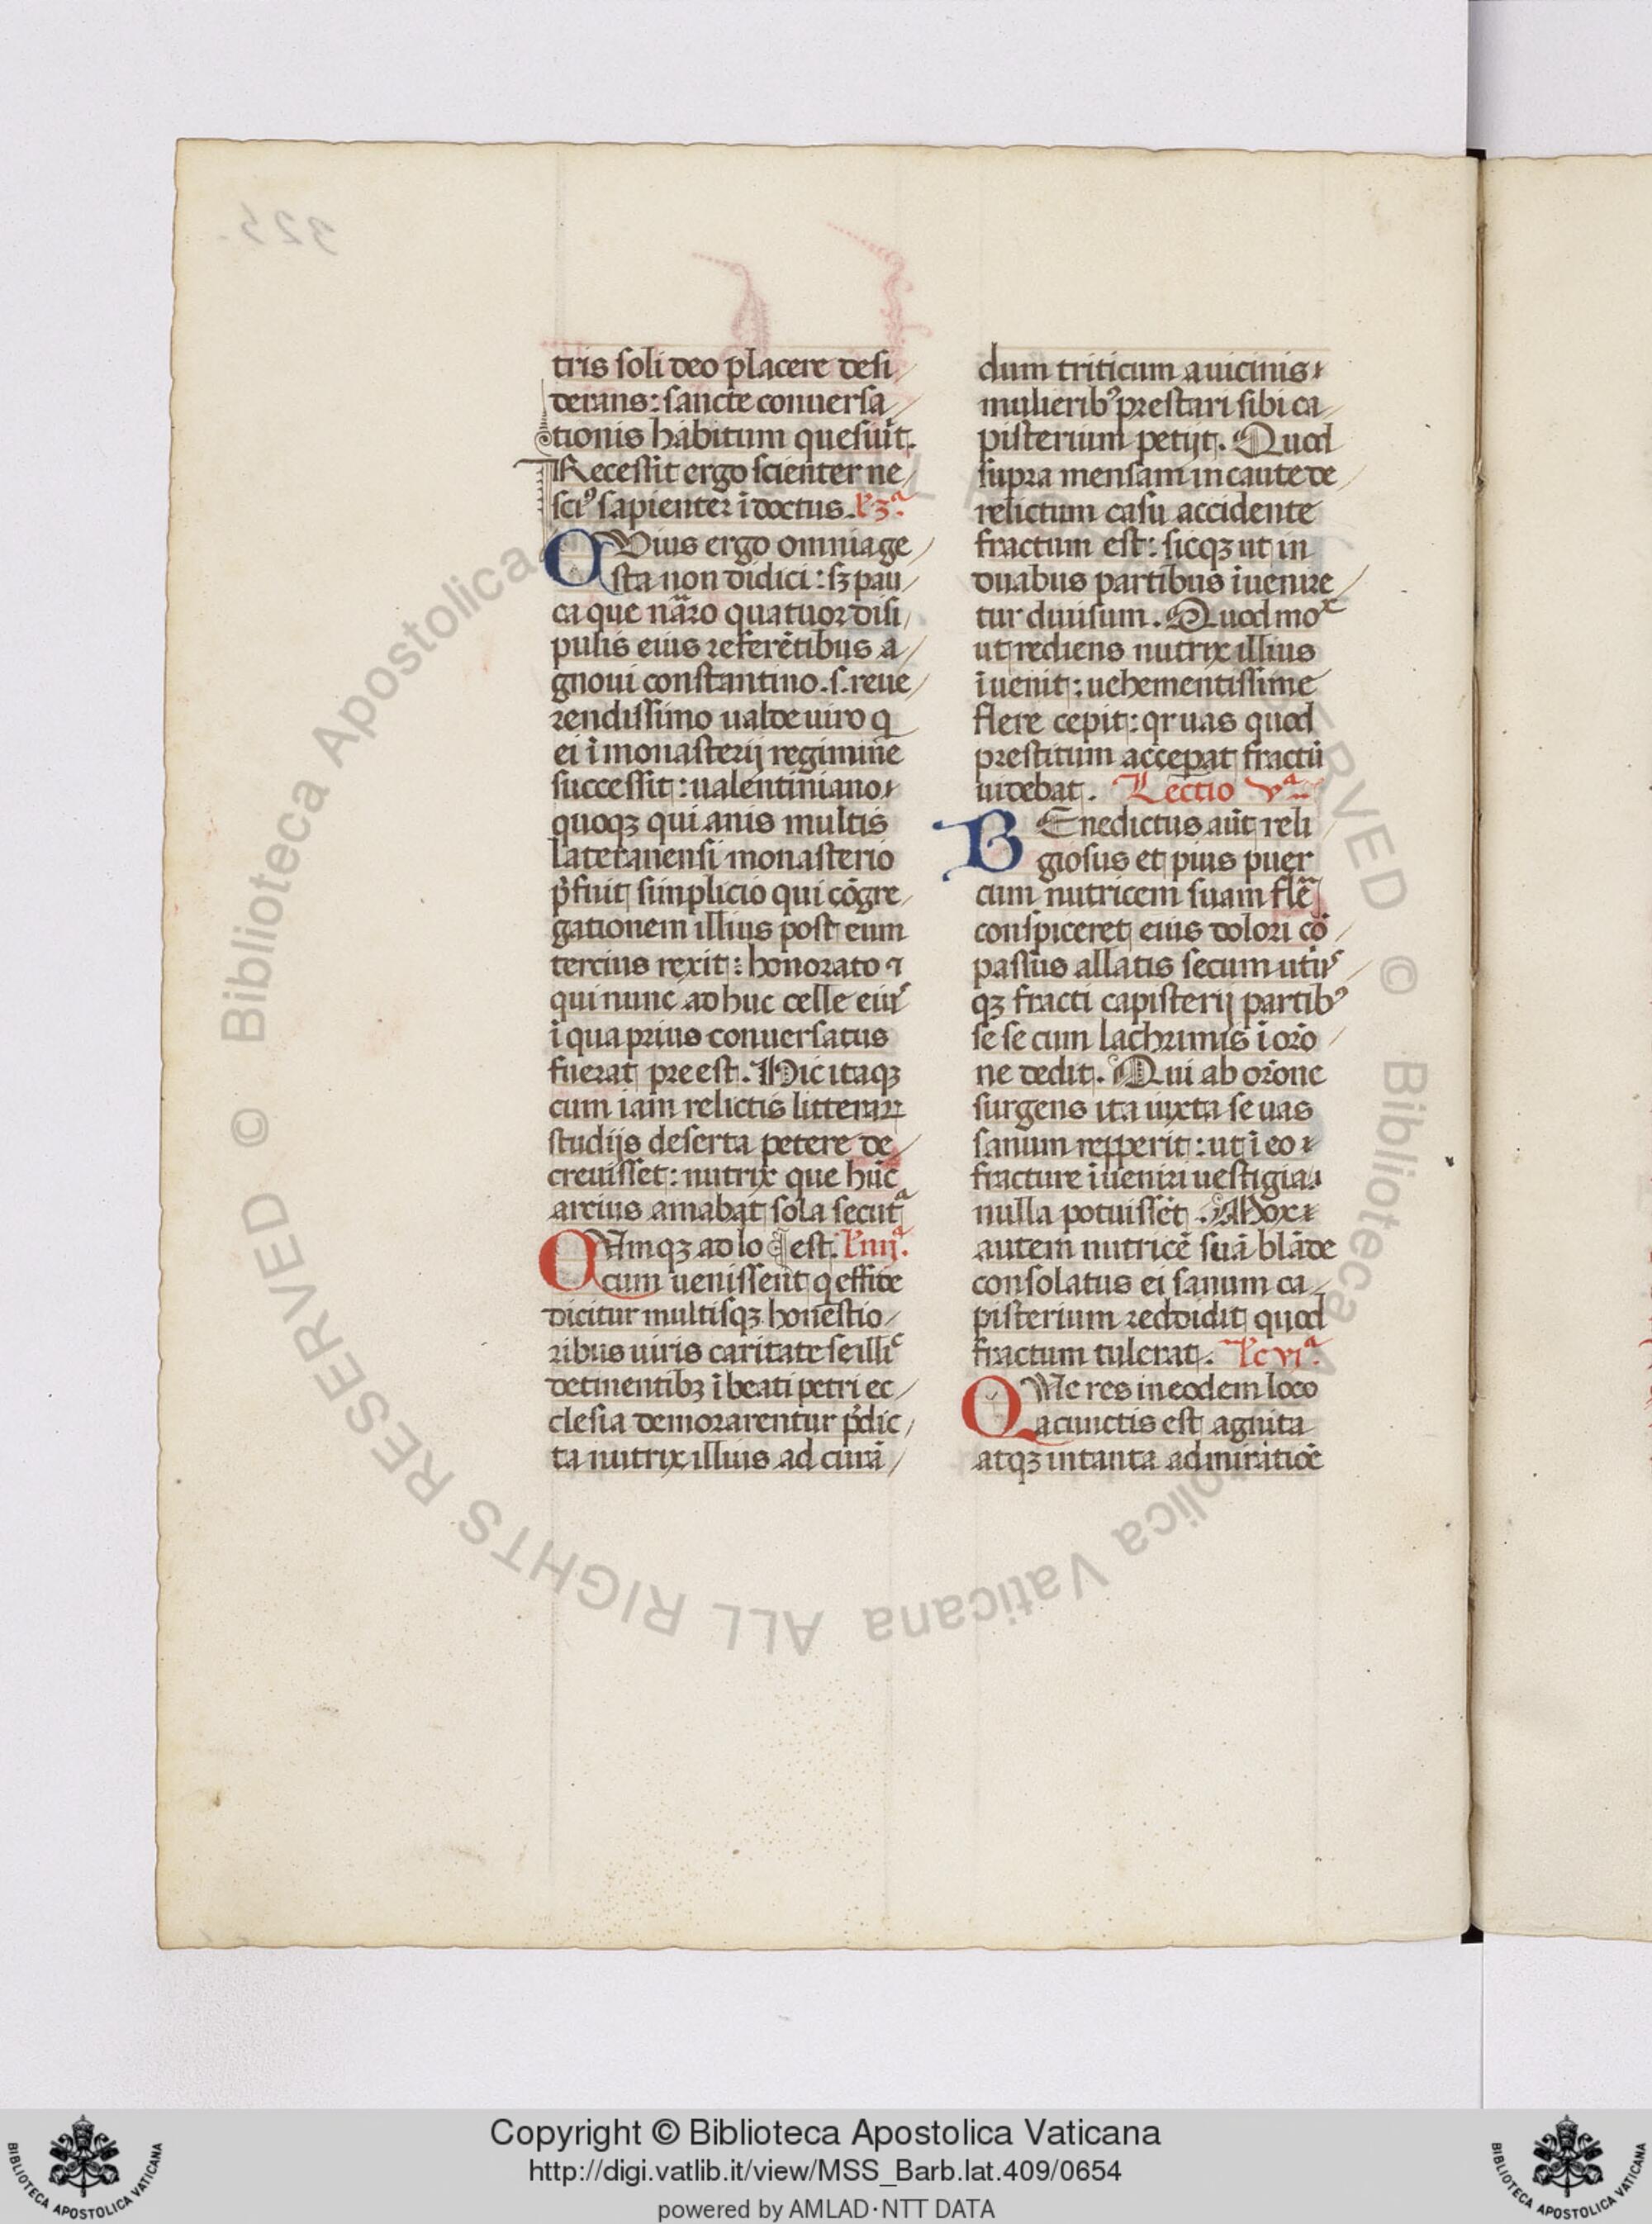 tris soli deo placere desi
derans: sancte conuersa
tionis habitum quesiuit.
Recessit ergo scienter ne
sciꝰ sapienter ĩdoctus. l'3ᵃ.
OVius ergo omnia ge
sta non didici: sꝫ pau
ca que nãro quatuor disi
pulis eius referẽtibus a
gnoui constantino .s. reue
rendissimo ualde uiro q
ei ĩ monasterij regimine
successit: ualentiniano
quoqꝫ qui anis multis
lateranensi monasterio
p̃fuit simplicio qui cõgre
gationem illius post eum
tercius rexit: honorato ⁊
qui nunc ad huc celle eiuˢ
ĩ qua prius conuersatus
fuerat preest. Hic itaqꝫ
cum iam relictis litterarꝝ
studijs deserta petere de
creuisset: nutrix que hũc
arcius amabat sola secutᵃ
QAmqꝫ ad lo est. l'iiijᵃ.
cum uenissent q effide
dicitur multisqꝫ honestio
ribus uiris caritate se illiᶜ
detinentibꝫ ĩ beati petri ec
clesia demorarentur p̃dic
ta nutrix illius ad curã
dum triticum a uicinis
mulieribꝰ prestari sibi ca
pisterium petijt. Quod
supra mensam incaute de
relictum casu accidente
fractum est: sicqꝫ ut in
duabus partibus ĩuenire
tur diuisum. Quod moˣ
ut rediens nutrix illius
ĩuenit: uehementissime
flere cepit: qr uas quod
prestitum acceperat fractũ
uidebat. Lectio vᵃ.
BEnedictus aũt reli
giosus et pius puer
cum nutricem suam flẽ
conspiceret eius dolori cõ
passus allatis secum utriˢ
qꝫ fracti capisterij partibꝰ
se se cum lachrimis ĩ orõ
ne dedit. Qui ab orõne
surgens ita iuxta se uas
sanum repperit: ut ĩ eo
fracture ĩueniri uestigia
nulla potuissẽt. Mox
autem nutricẽ suã blãde
consolatus ei sanum ca
pisterium reddidit quod
fractum tulerat. l'c viᵃ.
QVe res in eodem loco
a cunctis est agnita
atqꝫ in tanta admiratiõe
325.
© Biblioteca Apostolica Vaticana ALL RIGHTS RESERVED
Copyright © Biblioteca Apostolica Vaticana
http://digi.vatlib.it/view/MSS_Barb.lat.409/0654
powered by AMLAD·NTT DATA
BIBLIOTECA APOSTOLICA VATICANA
BIBLIOTECA APOSTOLICA VATICANA